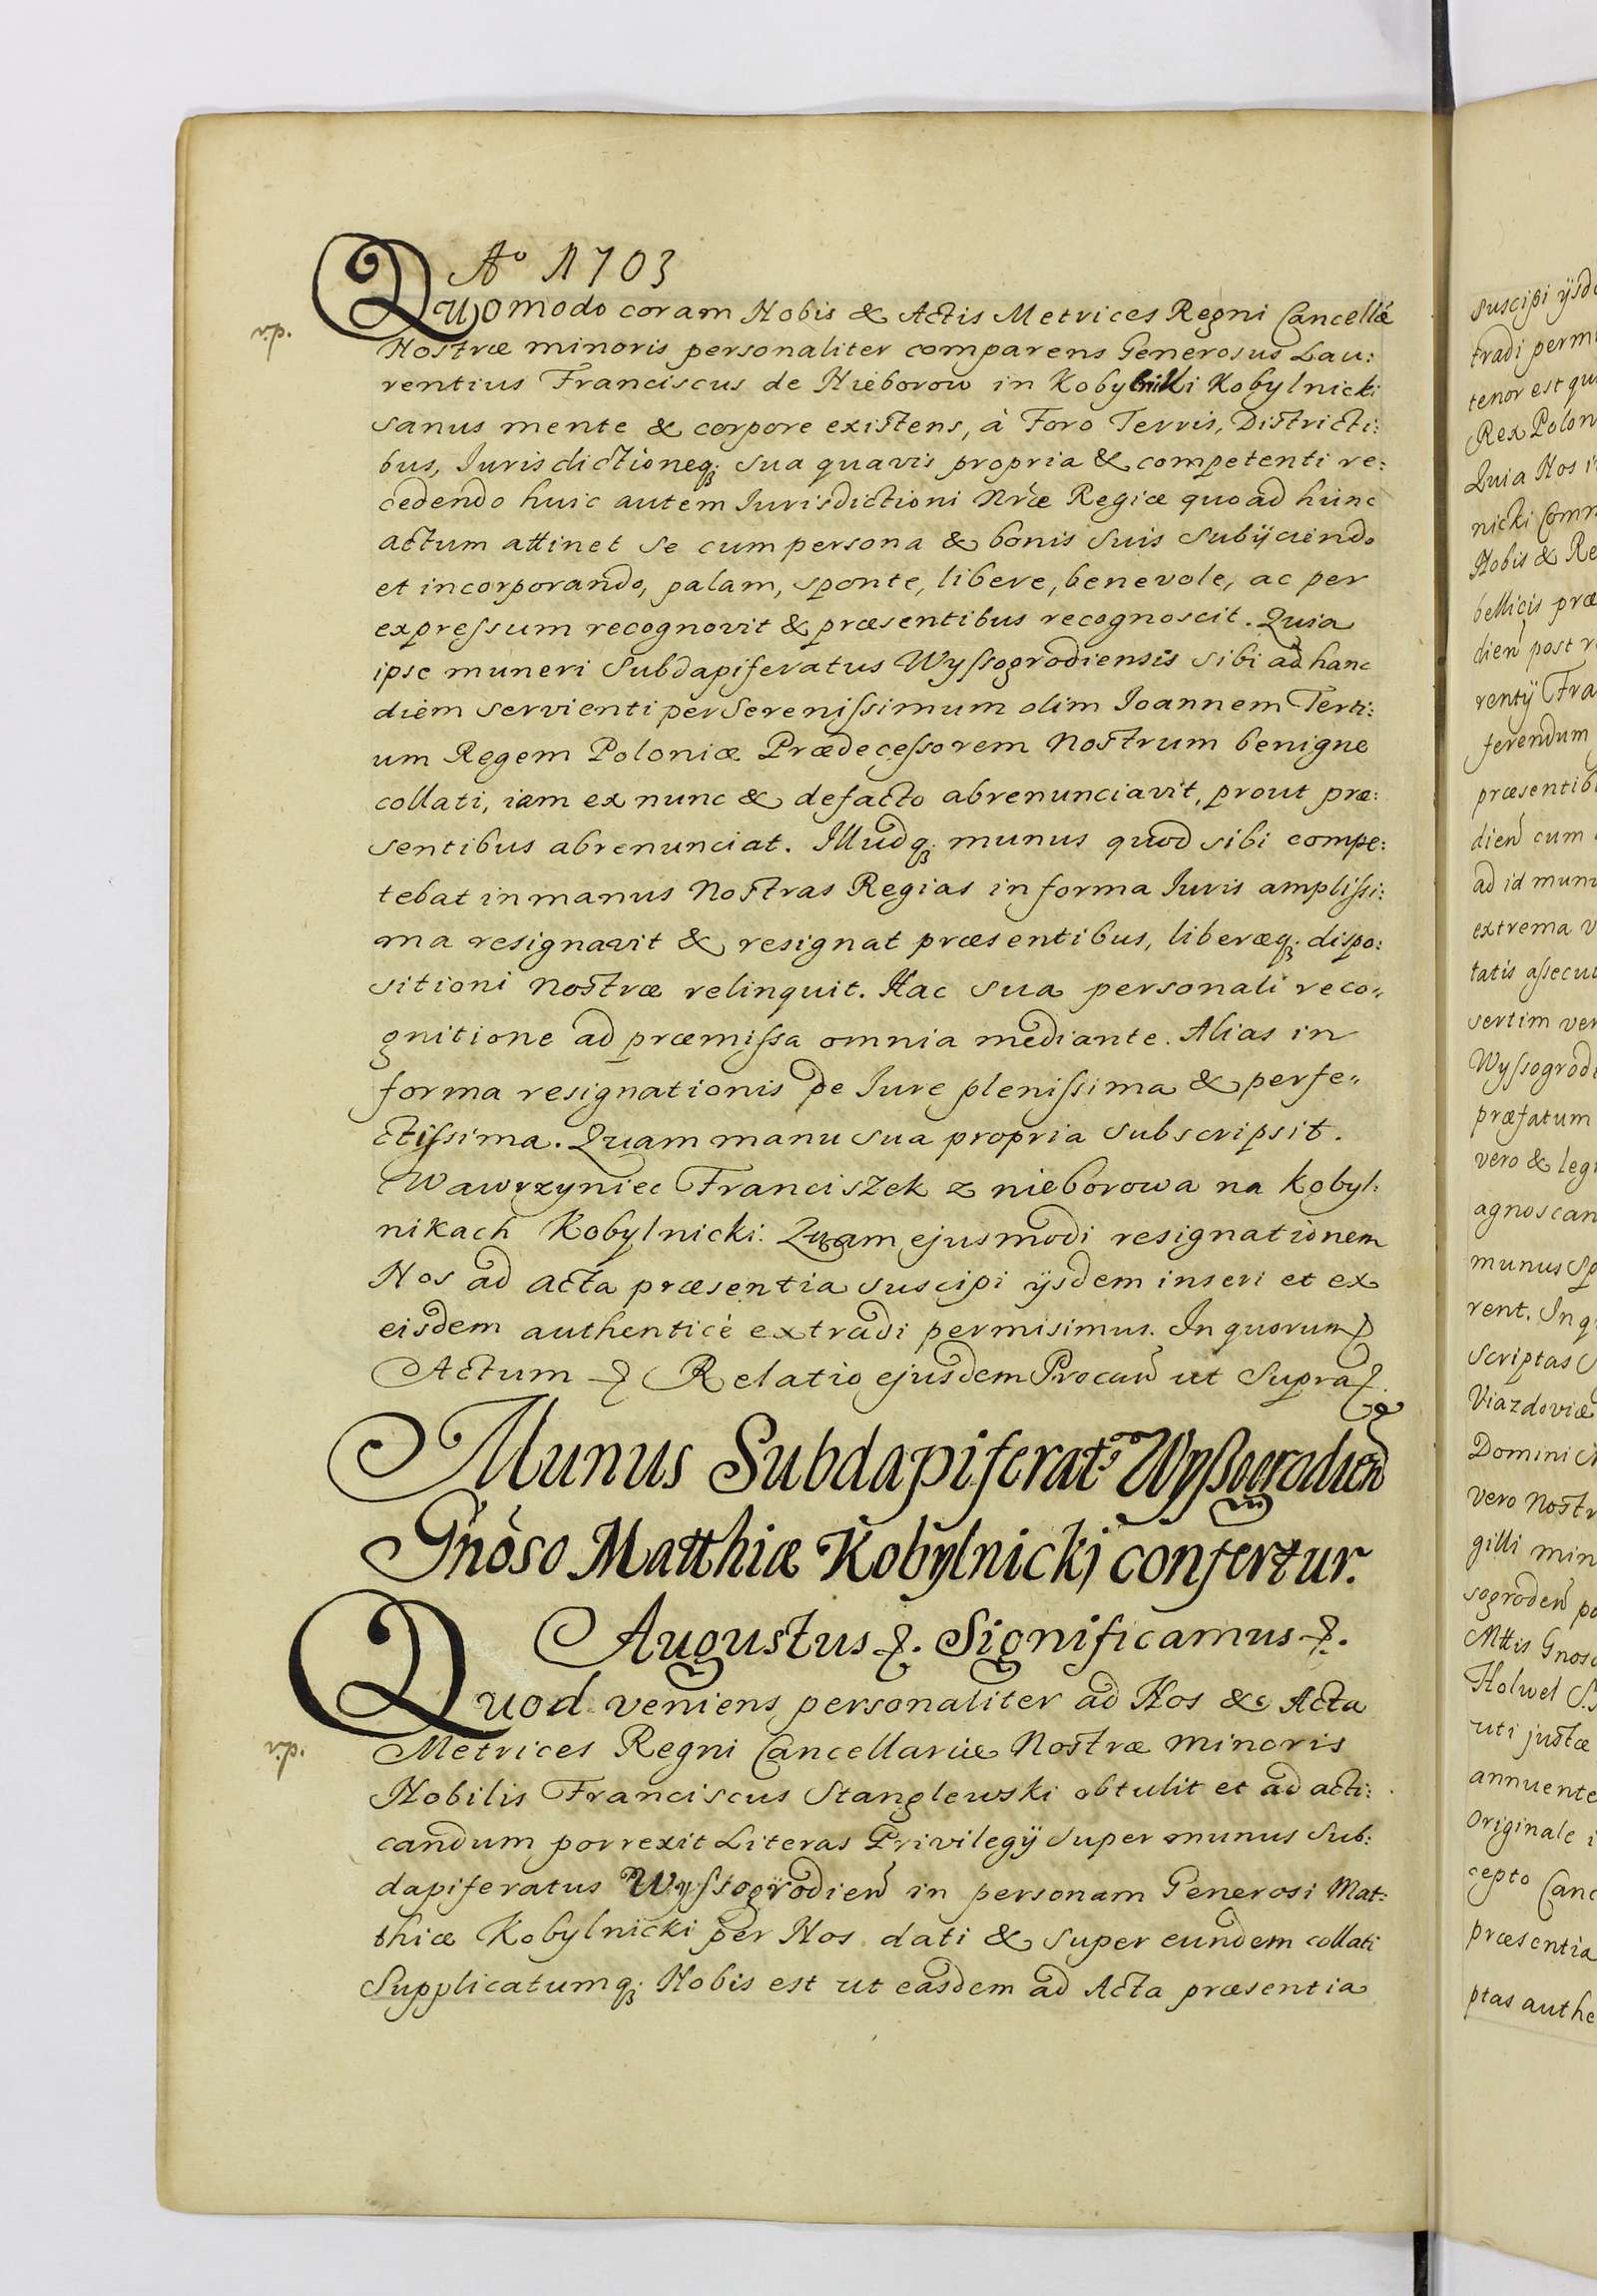 Aº 1703
Quomodo coram Nobis & Actis Metrices Regni Cancellæ
v.p.
Nostræ minoris personaliter comparens Generosus Lau:
rentius Franciscus de Nieborow in Kobylniki Kobylnicki
sanus mente & corpore existens, à Foro Terris, Districti:
bus, Jurisdictioneq; sua quavis propria & competenti re:
cedendo huic autem Jurisdictioni Nræ Regiæ quo ad hunc
actum attinet se cum persona & bonis suis subijciendo
et incorporando, palam, sponte, libere, benevole, ac per
expressum recognovit & præsentibus recognoscit. Quia
ipse muneri Subdapiferatus Wyssogrodiensis sibi ad hanc
diem servienti per Serenissimum olim Joannem Terti:
um Regem Poloniæ Prædecessorem Nostrum benigne
collati, iam ex nunc & defacto abrenunciavit, prout præ:
sentibus abrenunciat. Illudq; munus quod sibi compe:
tebat in manus Nostras Regias in forma Juris amplissi:
ma resignavit & resignat præsentibus, liberæq; dispo:
sitioni Nostræ relinquit. Hac sua personali reco„
gnitione ad præmissa omnia mediante. Alias in
forma resignationis de Jure plenissima & perfe„
ctissima. Quam manu sua propria subscripsit.
Wawrzyniec Franciszek z nieborowa na Kobyl:
nikach Kobylnicki. Quam ejusmodi resignationem
Nos ad acta præsentia suscipi ijsdem inseri et ex
eisdem authenticè extradi permisimus. In quorum
Actum Relatio ejusdem Procanc ut Supra
Munus Subdapiferats Wyssogrodien
Gnoso Matthiæ Kobylnicki confertur.
Augustus. Significamus.
Quod veniens personaliter ad Nos & Acta
v.p.
Metrices Regni Cancellariæ Nostræ Minoris
Nobilis Franciscus Stanglewski obtulit et ad acti:
candum porrexit Literas Privilegij super munus Sub:
dapiferatus Wyssogrodien in personam Generosi Mat:
thiæ Kobylnicki per Nos dati & super eundem collati
Supplicatumq; Nobis est ut easdem ad Acta præsentia
suscipi ijsd
tradi perm
tenor est qu
Rex Polon
Quia Nos i
nicki Com
Nobis & Re
bellicis præ
dien post r
rentij Fra
ferendum
præsentib
dien cum
ad id mun
extrema v
tatis assecu
sertim ver
Wyssogrodi
præfatum
vero & legi
agnoscan
munus Sp
rent. In q
scriptas
Viazdoviæ
Domini
vero Nostr
gilli min
sogroden po
Mttis Gnos
Holwel S.
uti justæ
annuente
Originale i
cepto Canc
præsentia
ptas authe